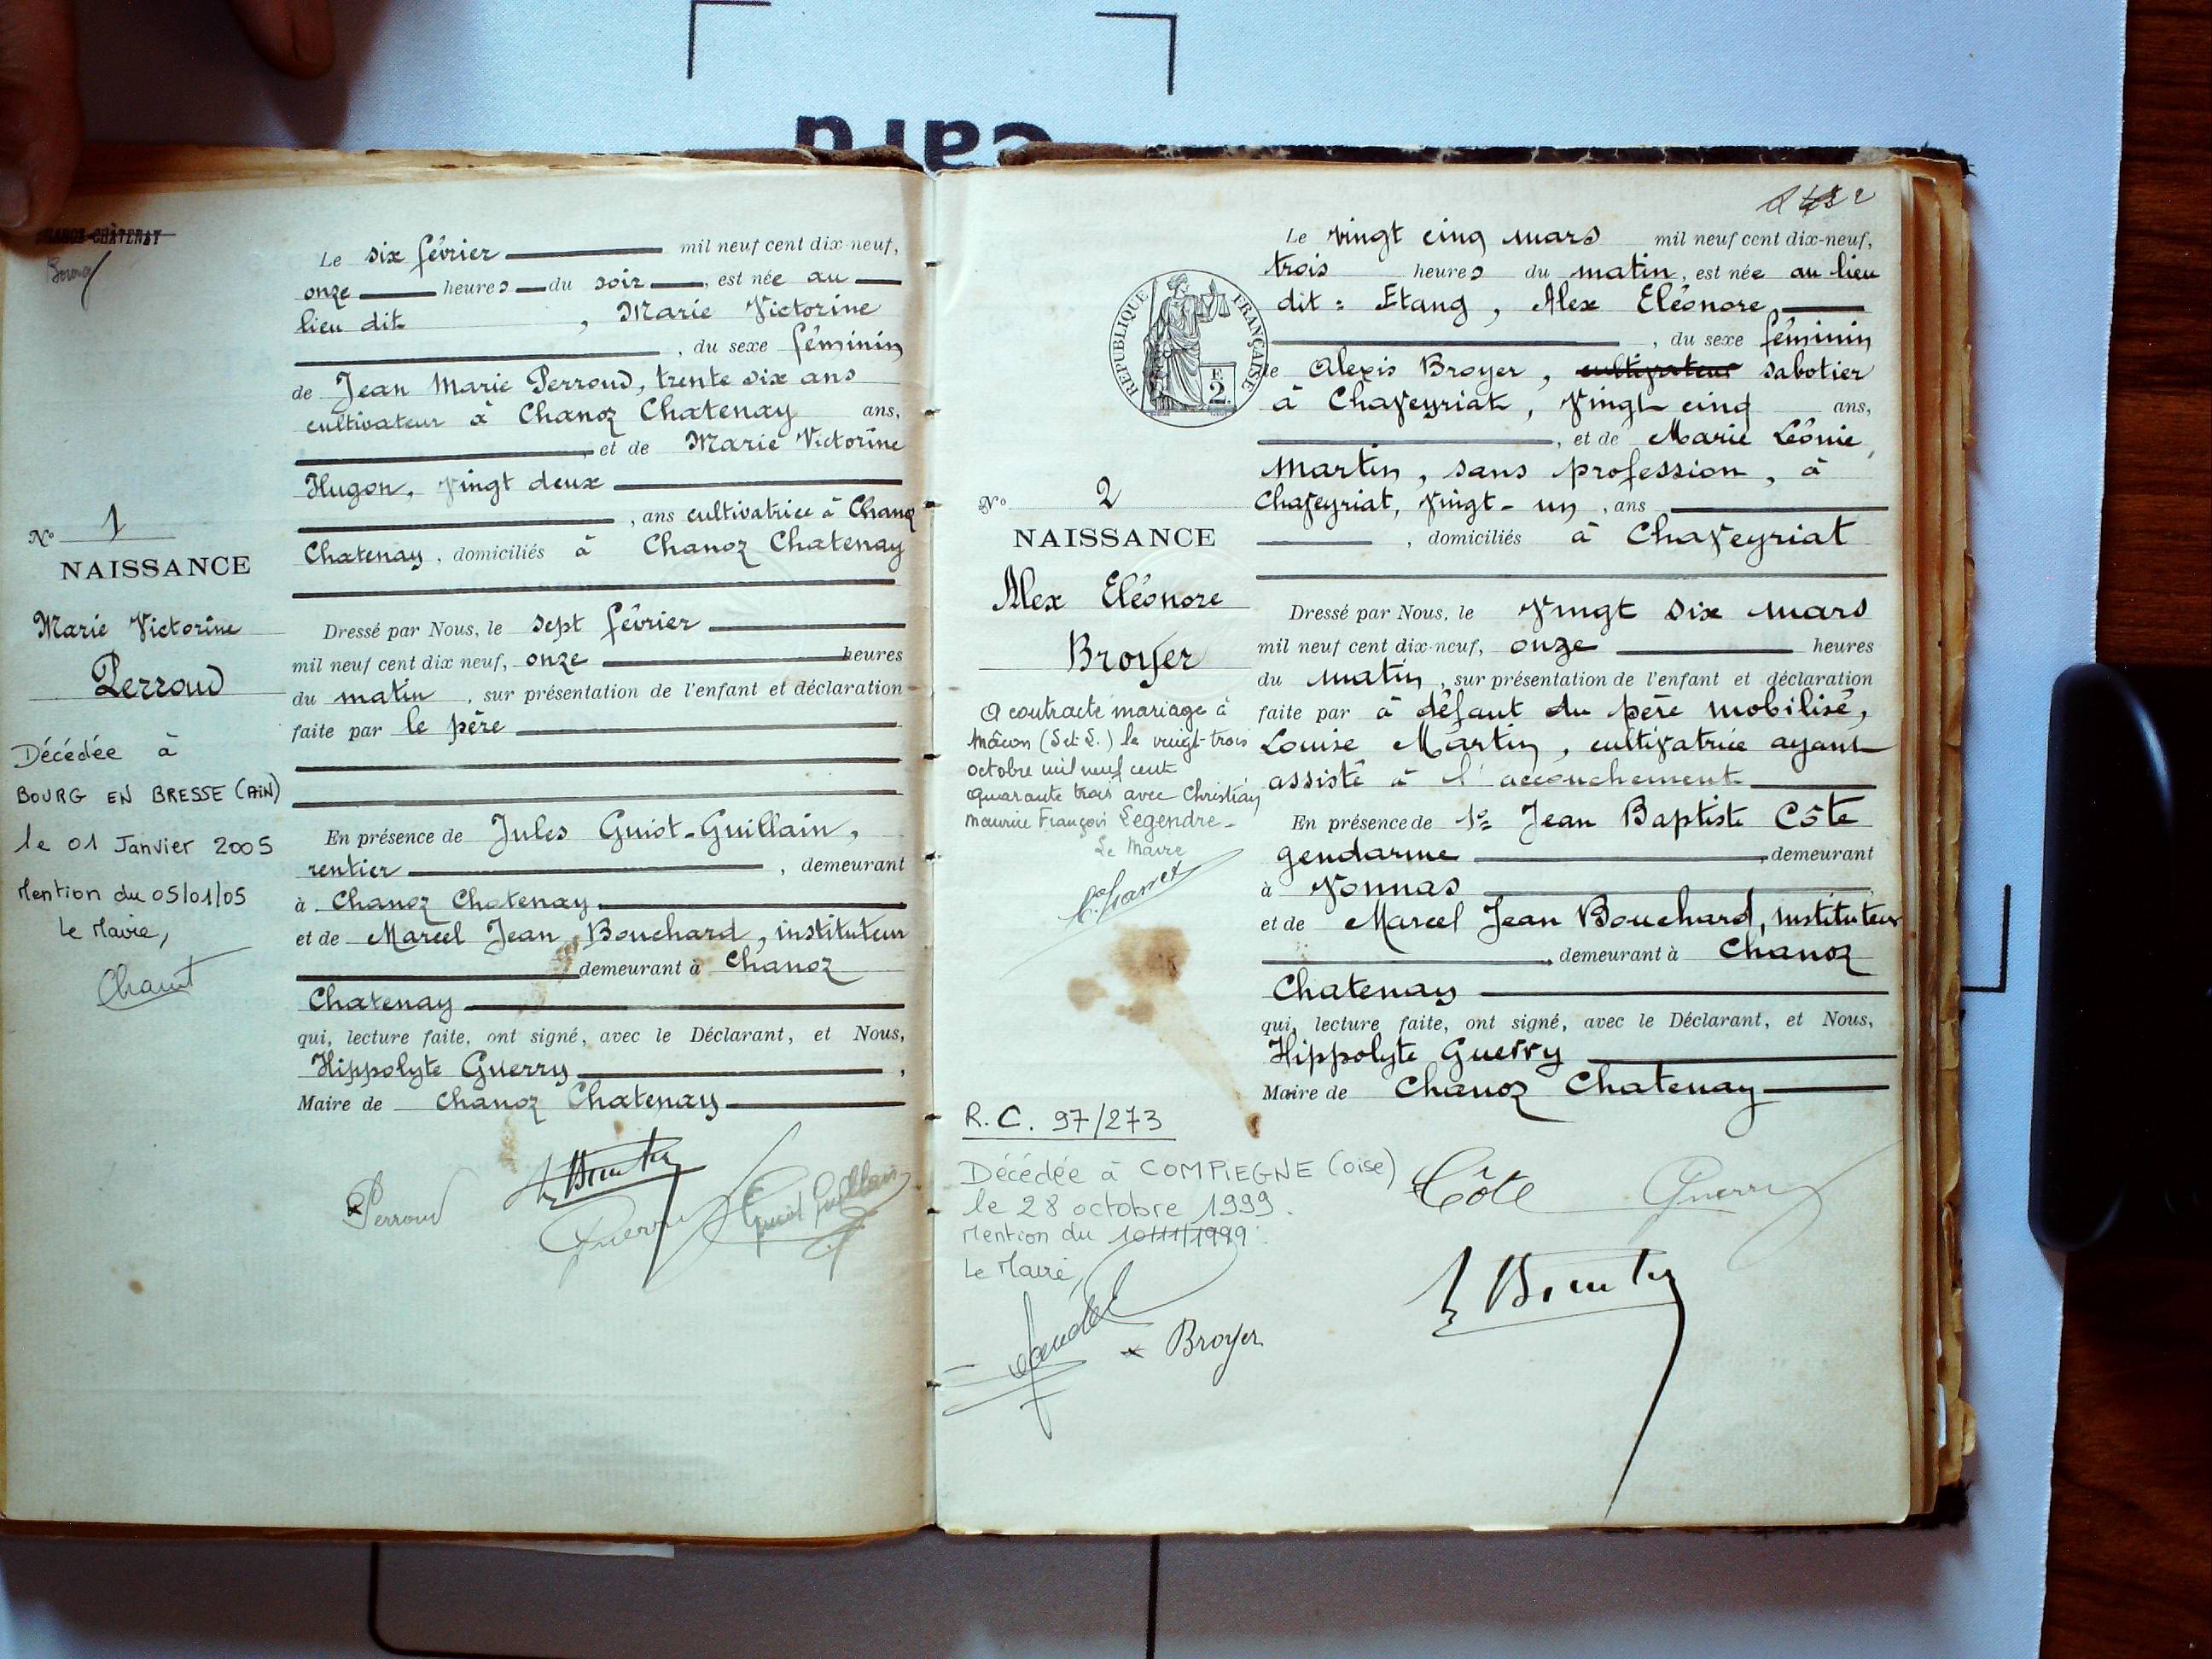 card
CHANOZ-CHÂTENAY
Le six février mil neuf cent dix-neuf,
onze heures du soir, est née au
lieu dit , Marie Victorine
, du sexe féminin
de Jean Marie Perroud, trente six ans
cultivateur à Chanoz Chatenay ans,
et de Marie Victorine
Hugon, vingt deux
, ans cultivatrice à Chanoz
Chatenay, domiciliés à Chanoz Chatenay
Dressé par Nous, le sept février
mil neuf cent dix neuf, onze heures
du matin, sur présentation de l'enfant et déclaration
faite par le père
En présence de Jules Guiot-Guillain,
rentier , demeurant
à Chanoz Chatenay
et de Marcel Jean Bouchard, instituteur
demeurant à Chanoz
Chatenay
qui, lecture faite, ont signé, avec le Déclarant, et Nous,
Hippolyte Guerry ,
Maire de Chanoz Chatenay
Perroud
Guerry
Guiot Guillain
No 1
NAISSANCE
Marie Victorine
Perroud
Décédée à
BOURG EN BRESSE (AIN)
le 01 Janvier 2005
Mention du 05/01/05
Le Maire,
REPUBLIQUE FRANÇAISE
2
Le vingt cinq mars mil neuf cent dix-neuf,
trois heures du matin, est née au lieu
dit : Etang, Alex Eléonore,
, du sexe féminin
de Alexis Broyer, cultivateur sabotier
à Chaveyriat, vingt cinq ans,
, et de Marie Léonie
Martin, sans profession, à
Chaveyriat, vingt-un , ans
, domiciliés à Chaveyriat
Dressé par Nous, le vingt six mars
mil neuf cent dix-neuf, onze heures
du matin, sur présentation de l'enfant et déclaration
faite par à défaut du père mobilisé,
Louise Martin, cultivatrice ayant
assisté à l'accouchement
En présence de 1º Jean Baptiste Côte
gendarme , demeurant
à Vonnas
et de Marcel Jean Bouchard, instituteur
, demeurant à Chanoz
Chatenay
qui, lecture faite, ont signé, avec le Déclarant, et Nous,
Hippolyte Guerry
Maire de Chanoz Chatenay
Côte Guerry
No 2
NAISSANCE
Alex Eléonore
Broyer
A contracté mariage à
Mâcon (S et L.) le vingt-trois
octobre mil neuf cent
quarante trois avec Christian
Maurice François Legendre-
Le Maire
R.C. 97/273
Décédée à COMPIEGNE (Oise)
le 28 octobre 1999.
Mention du 10/11/1999.
Le Maire,
x Broyer